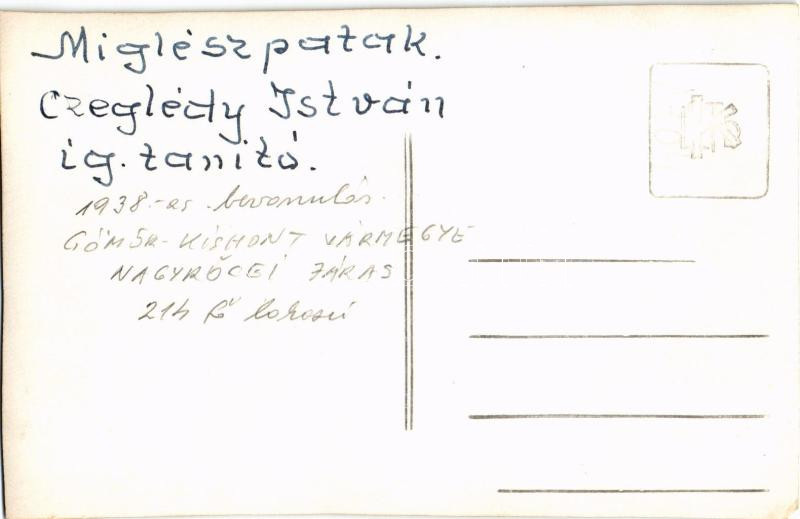 Miglészpatak.
Czeglédy István
ig. tanitó.
1938-as bevonulás.
GÖMÖR-KISHONT VÁRMEGYE
NAGYRŐCEI JÁRAS
214 fő lakosú